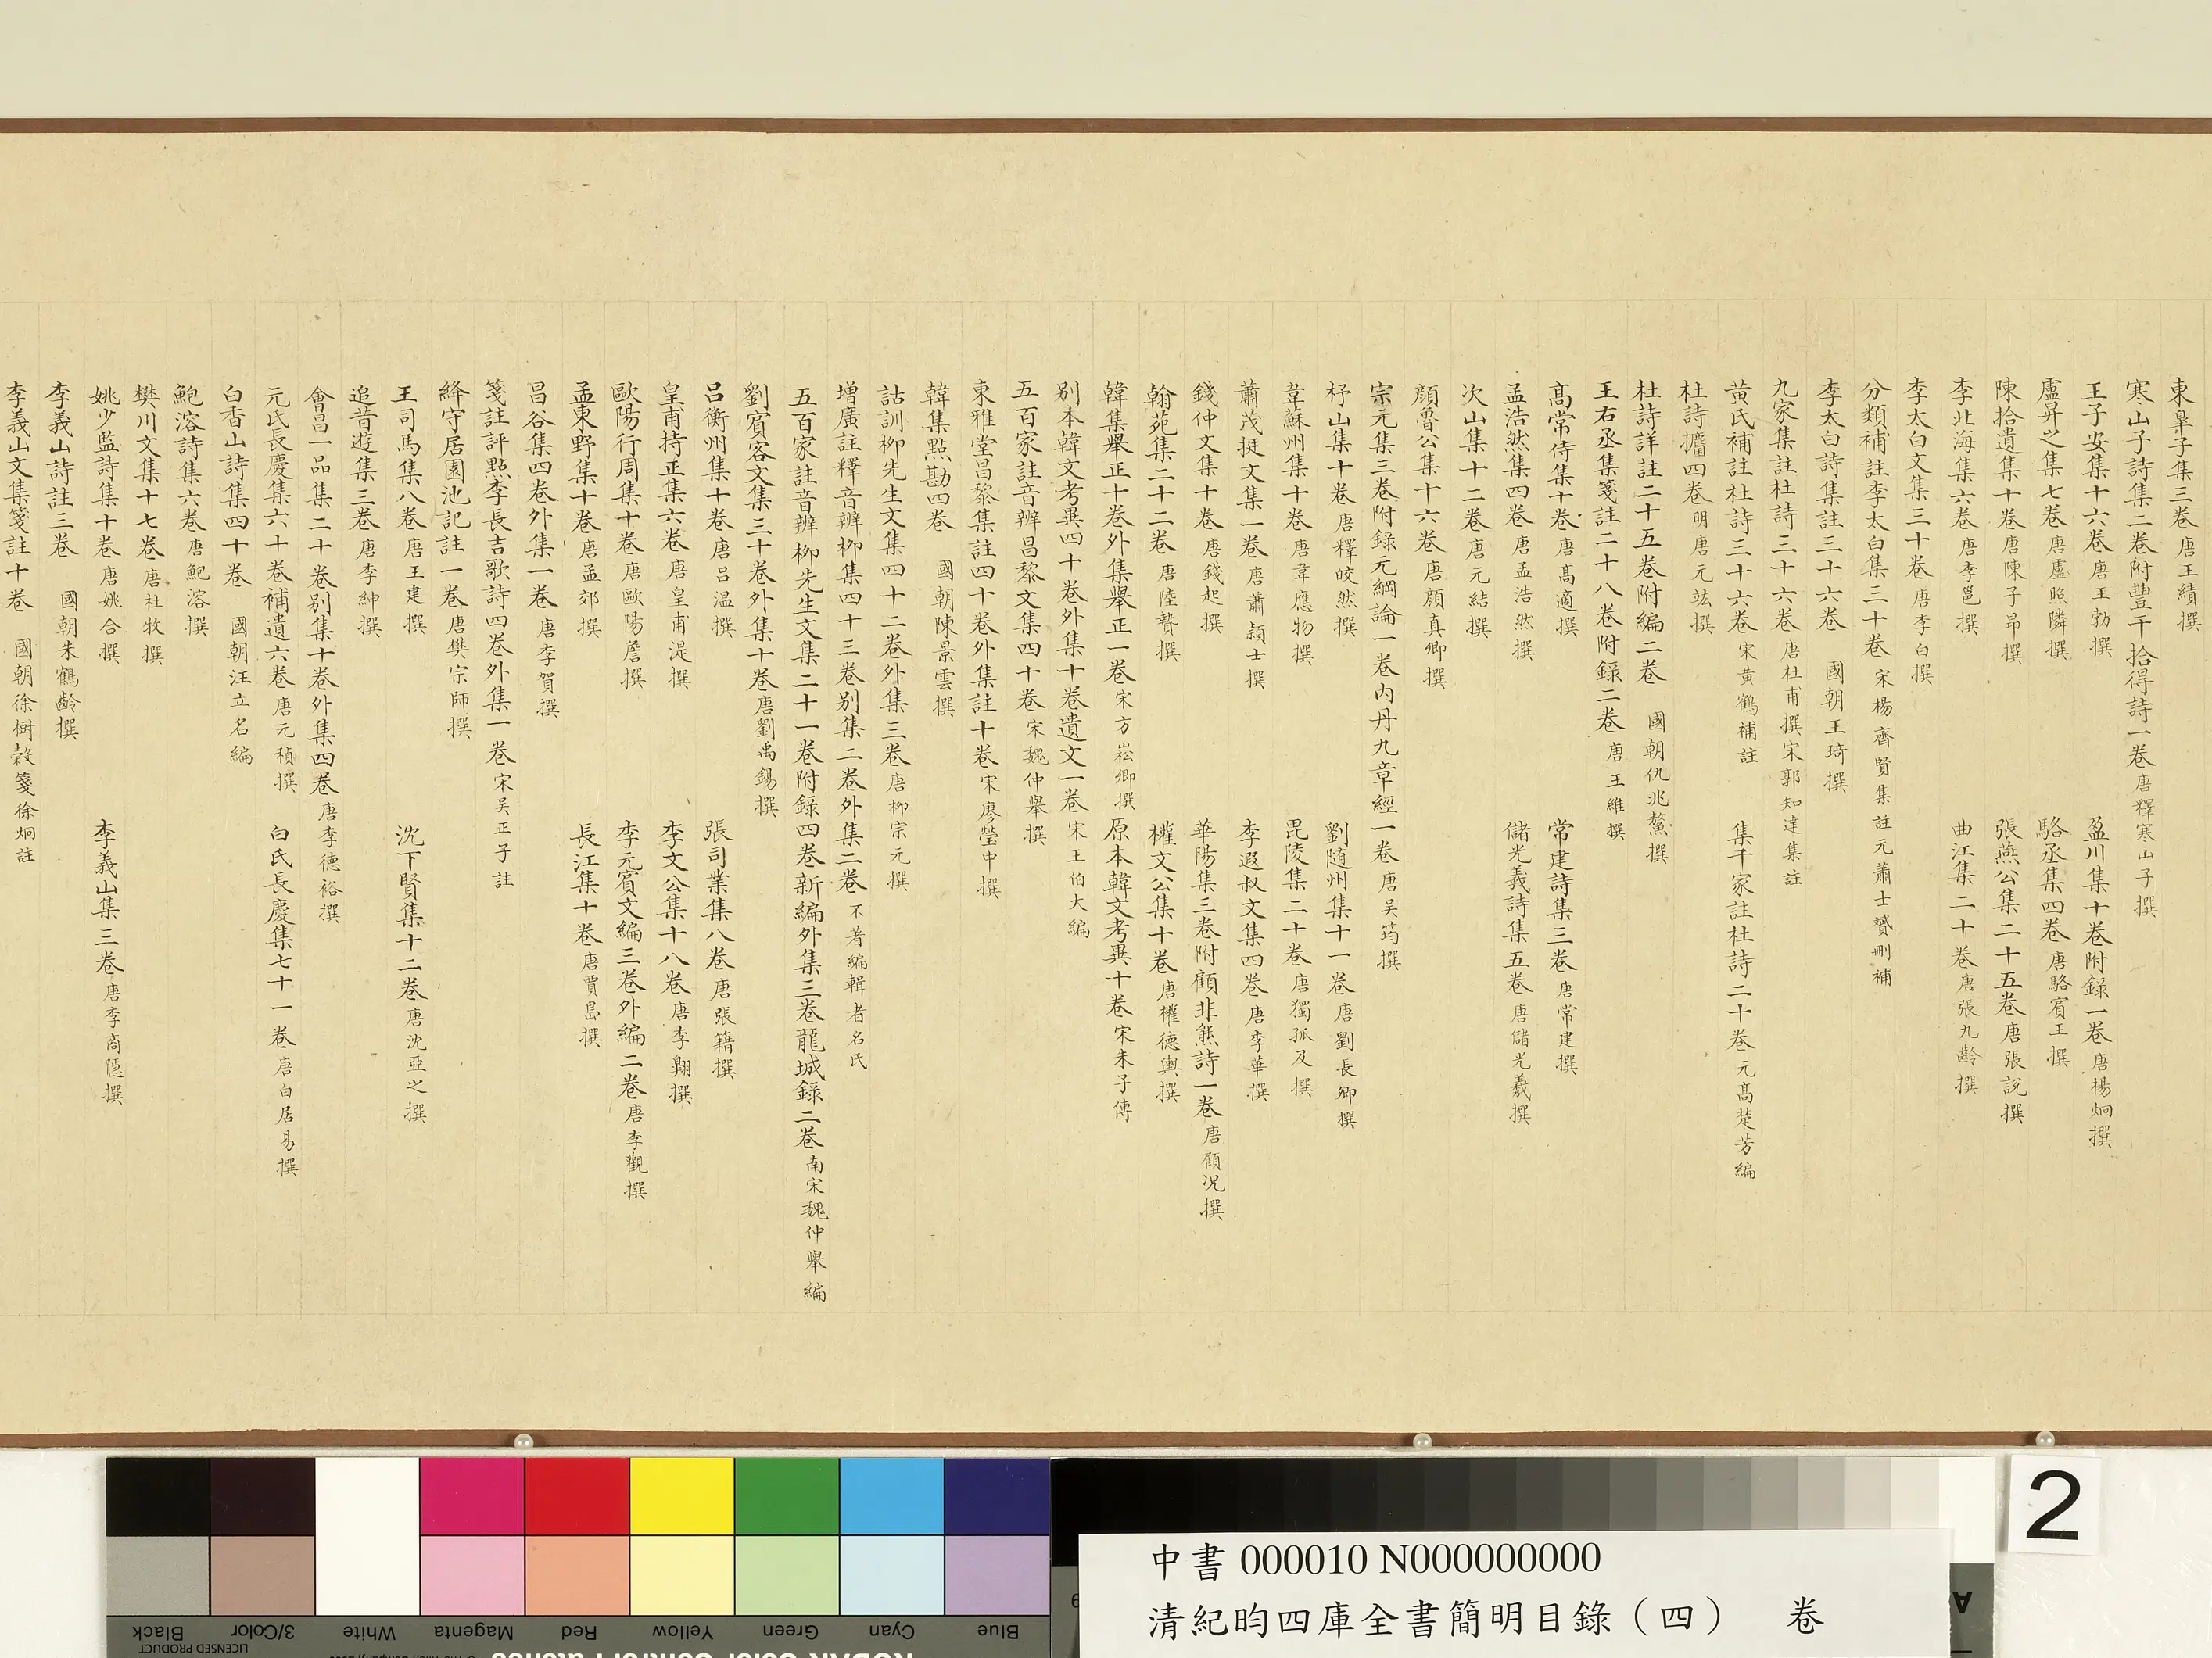 東臯子集三卷唐王績撰
寒山子詩集二卷附豐干拾得詩一卷唐釋寒山子撰
王子安集十六卷唐王勃撰 盈川集十卷附錄一卷唐楊炯撰
盧昇之集七卷唐盧照隣撰 駱丞集四卷唐駱賓王撰
陳拾遺集十卷唐陳子昂撰 張燕公集二十五卷唐張說撰
李北海集六卷唐李邕撰 曲江集二十卷唐張九齡撰
李太白文集三十卷唐李白撰
分類補註李太白集三十卷宋楊齊賢集註元蕭士贇刪補
李太白詩集註三十六卷 國朝王琦撰
九家集註杜詩三十六卷唐杜甫撰宋郭知達集註
黃氏補註杜詩三十六卷宋黃鶴補註 集千家註杜詩二十卷元髙楚芳編
杜詩攟四卷明唐元竑撰
杜詩詳註二十五卷附編二卷 國朝仇兆鰲撰
王右丞集箋註二十八卷附錄二卷唐王維撰
髙常侍集十卷唐髙適撰 常建詩集三卷唐常建撰
孟浩然集四卷唐孟浩然撰 儲光羲詩集五卷唐儲光羲撰
次山集十二卷唐元結撰
顔魯公集十六卷唐顔真卿撰
宗元集三卷附錄元綱論一卷內丹九章經一卷唐吳筠撰
杼山集十卷唐釋皎然撰 劉随州集十一卷唐劉長卿撰
韋蘇州集十卷唐韋應物撰 毘陵集二十卷唐獨孤及撰
蕭茂挺文集一卷唐蕭頴士撰 李遐叔文集四卷唐李華撰
錢仲文集十卷唐錢起撰 華陽集三卷附顧非熊詩一卷唐顧況撰
翰苑集二十二卷唐陸贄撰 權文公集十卷唐權德輿撰
韓集舉正十卷外集舉正一卷宋方崧卿撰 原本韓文考異十卷宋朱子傳
别本韓文考異四十卷外集十卷遺文一卷宋王伯大編
五百家註音辨昌黎文集四十卷宋魏仲舉撰
東雅堂昌黎集註四十卷外集註十卷宋廖瑩中撰
韓集點勘四卷 國朝陳景雲撰
詁訓柳先生文集四十二卷外集三卷唐柳宗元撰
增廣註釋音辨柳集四十三卷别集二卷外集二卷不著編輯者名氏
五百家註音辨柳先生文集二十一卷附錄四卷新編外集三卷龍城錄二卷南宋魏仲舉編
劉賓客文集三十卷外集十卷唐劉禹錫撰
呂衡州集十卷唐呂温撰 張司業集八卷唐張籍撰
皇甫持正集六卷唐皇甫湜撰 李文公集十八卷唐李翺撰
歐陽行周集十卷唐歐陽詹撰 李元賓文編三卷外編二卷唐李觀撰
孟東野集十卷唐孟郊撰 長江集十卷唐賈島撰
昌谷集四卷外集一卷唐李賀撰
箋註評點李長吉歌詩四卷外集一卷宋吳正子註
絳守居園池記註一卷唐樊宗師撰
王司馬集八卷唐王建撰 沈下賢集十二卷唐沈亞之撰
追昔遊集三卷唐李紳撰
會昌一品集二十卷别集十卷外集四卷唐李德裕撰
元氏長慶集六十卷補遺六卷唐元稹撰 白氏長慶集七十一卷唐白居易撰
白香山詩集四十卷 國朝汪立名編
鮑溶詩集六卷唐鮑溶撰
樊川文集十七卷唐杜牧撰
姚少監詩集十卷唐姚合撰 李義山集三卷唐李商隱撰
李義山詩註三卷 國朝朱鶴齡撰
李義山文集箋註十卷 國朝徐樹穀箋徐炯註
2
中書000010 N000000000
清紀昀四庫全書簡明目錄（四） 卷
Black 3/Color White Magenta Red Yellow Green Cyan Blue
LICENSED PRODUCT